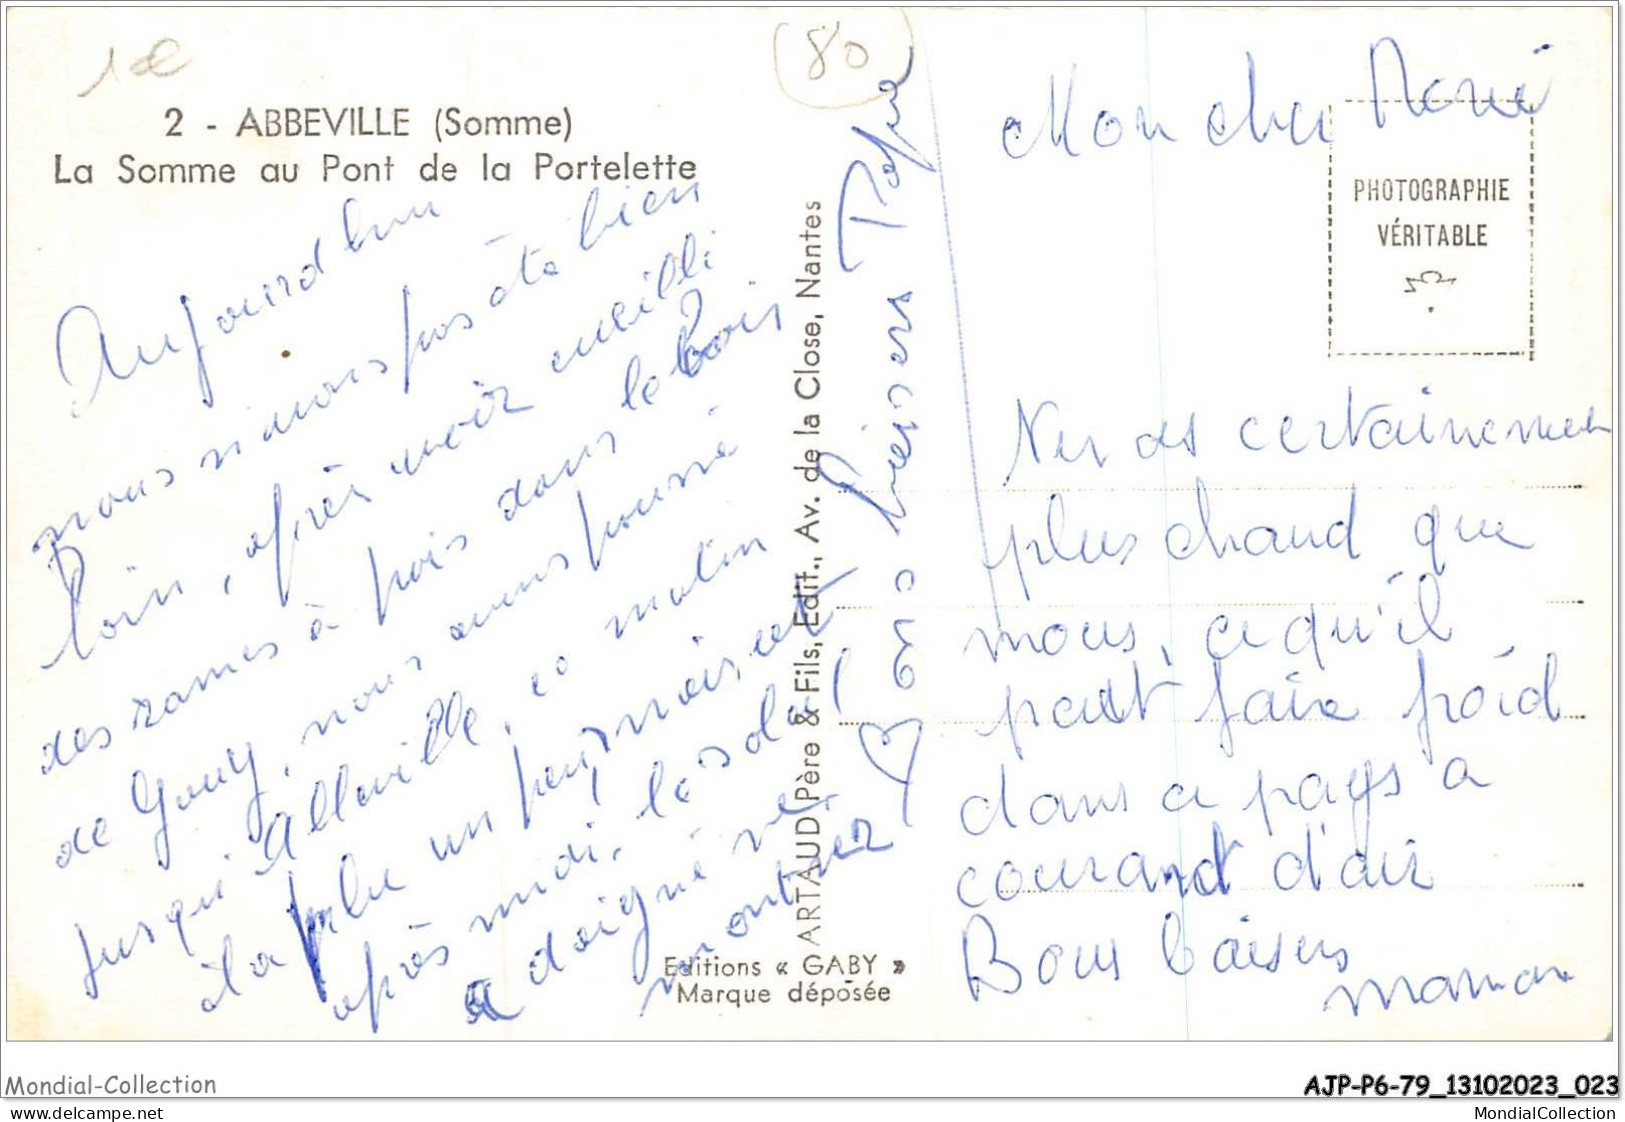 1e
(80)
2 - ABBEVILLE (Somme)
La Somme au Pont de la Portelette
Aujourd hui
nous n'avons pas été bien
loin, après avoir cueilli
des rames à pois dans le bois
de Gouy, nous avons poussé
jusqu'
la pluie un peu,
après midi, le soleil
a daigné se
montrer
Bons baisers Papa
ARTAUD Père & Fils, Edit., Av. de la Close, Nantes
Editions « GABY »
Marque déposée
Mon cher René
PHOTOGRAPHIE
VÉRITABLE
certainement
plus chaud que
nous, ce qu'il
peut faire froid
dans ce pays a
courant d'air
Bons baisers
maman
Mondial-Collection
AJP-P6-79_13102023_023
this is a sample text
MondialCollection